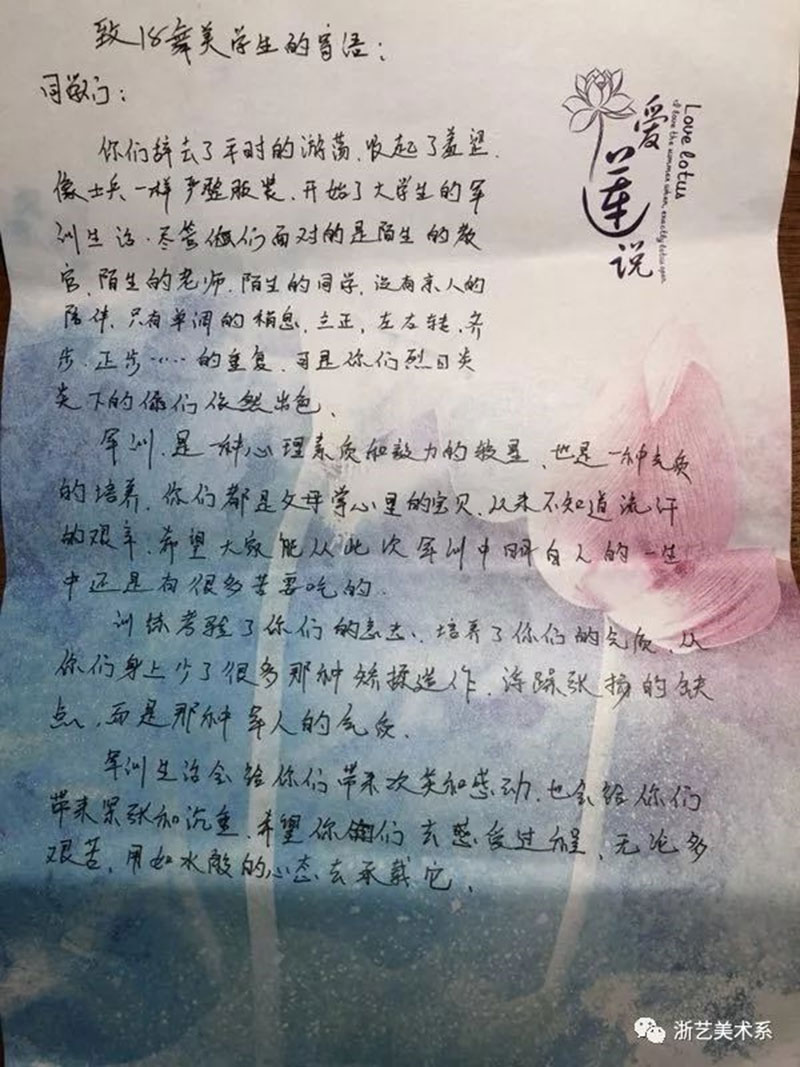 致18舞美学生的寄语：
同学们：
你们辞去了平时的游荡，收起了羞涩，
像士兵一样严整服装，开始了大学生的军
训生活。尽管你们面对的是陌生的教
官，陌生的老师，陌生的同学，没有亲人的
陪伴，只有单调的稍息，立正，左右转，齐
步，正步……的重复，可是你们烈日炎
炎下的你们依然出色。
军训，是一种心理素质和毅力的较量，也是一种气质
的培养，你们都是父母掌心里的宝贝，从来不知道流汗
的艰辛，希望大家能从此次军训中明白人的一生
中还是有很多苦要吃的。
训练考验了你们的意志，培养了你们的气质，从
你们身上少了很多那种矫揉造作，浮躁张扬的缺
点，而是那种军人的气质。
军训生活会给你们带来欢笑和感动，也会给你们
带来紧张和沉重，希望你们去感受过程，无论多
艰苦，用如水般的心态去承载它。
爱莲说
Love lotus
浙艺美术系